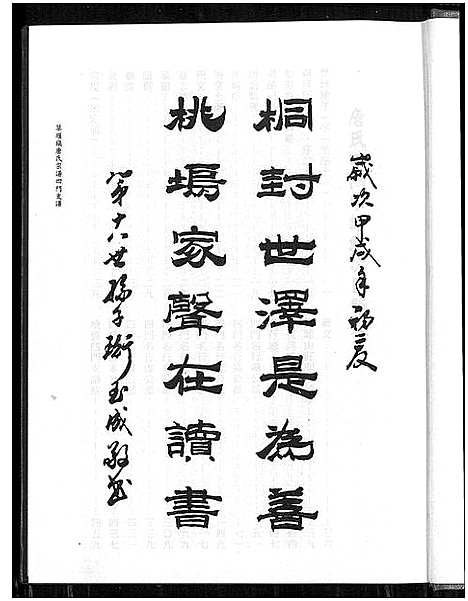 歲次甲戌年初夏
桐封世澤是為善
桃塢家聲在讀書
第十八世孫子衡玉成敬書
華堰鎮唐氏宗譜四門支譜